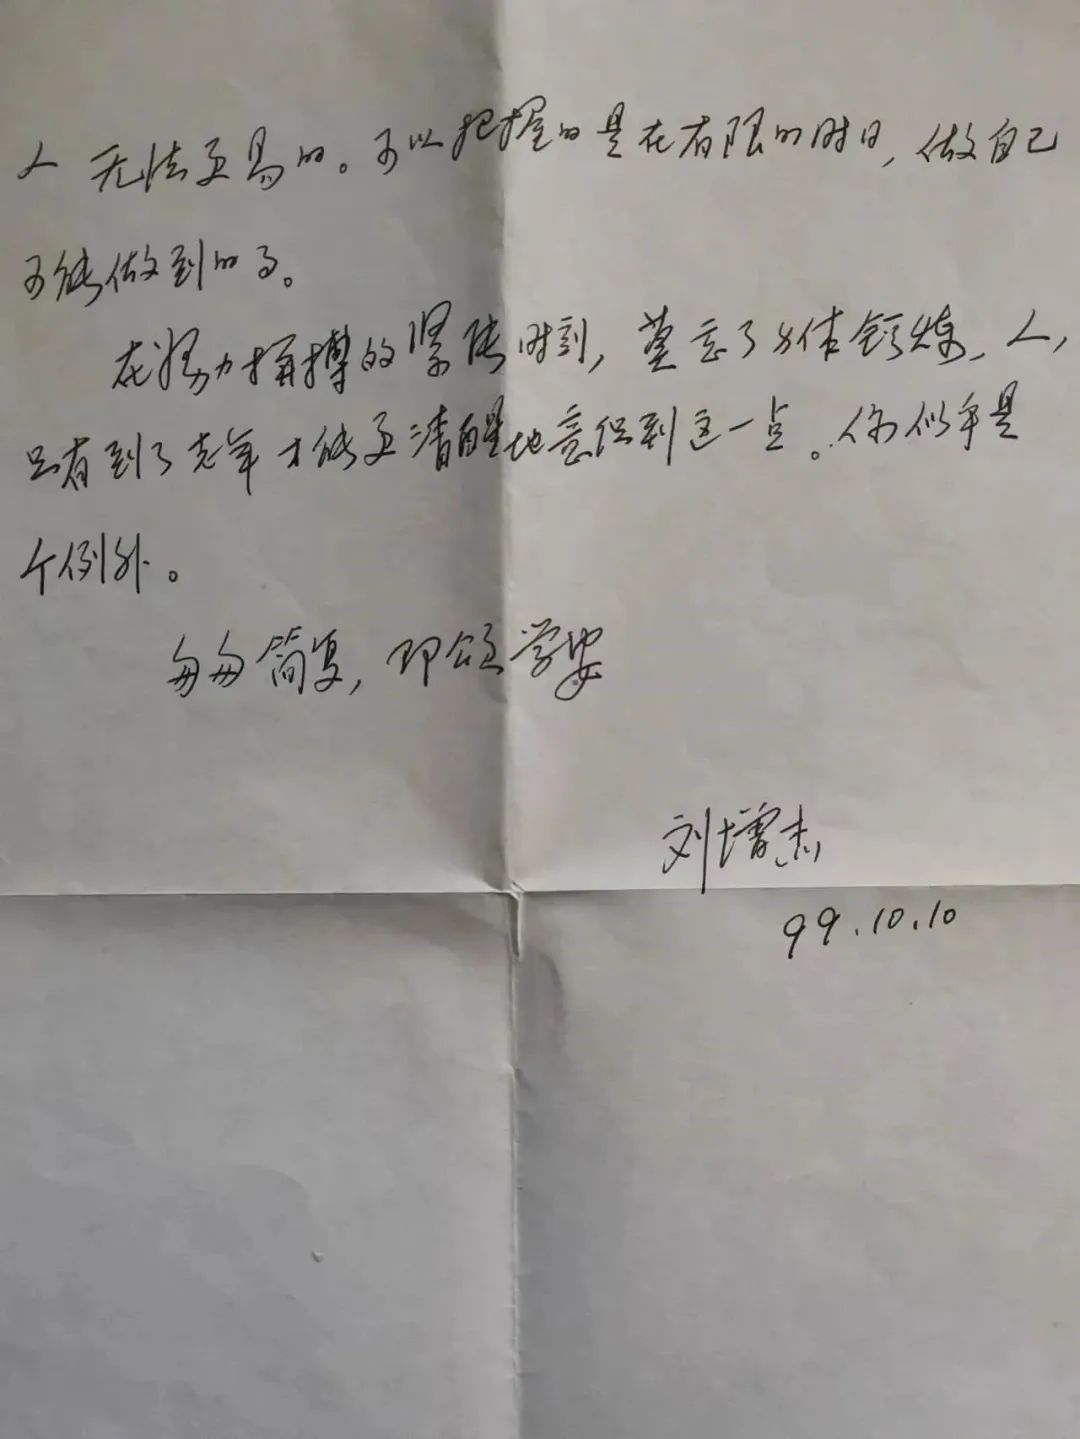 人无法更易的。可以把握的是在有限的时日，做自己
可能做到的事。
在努力拼搏的紧张时刻，莫忘了身体锻炼。人，
只有到了老年才能更清醒地意识到这一点。你似乎是
个例外。
匆匆简复，即颂学安
刘增杰
99.10.10